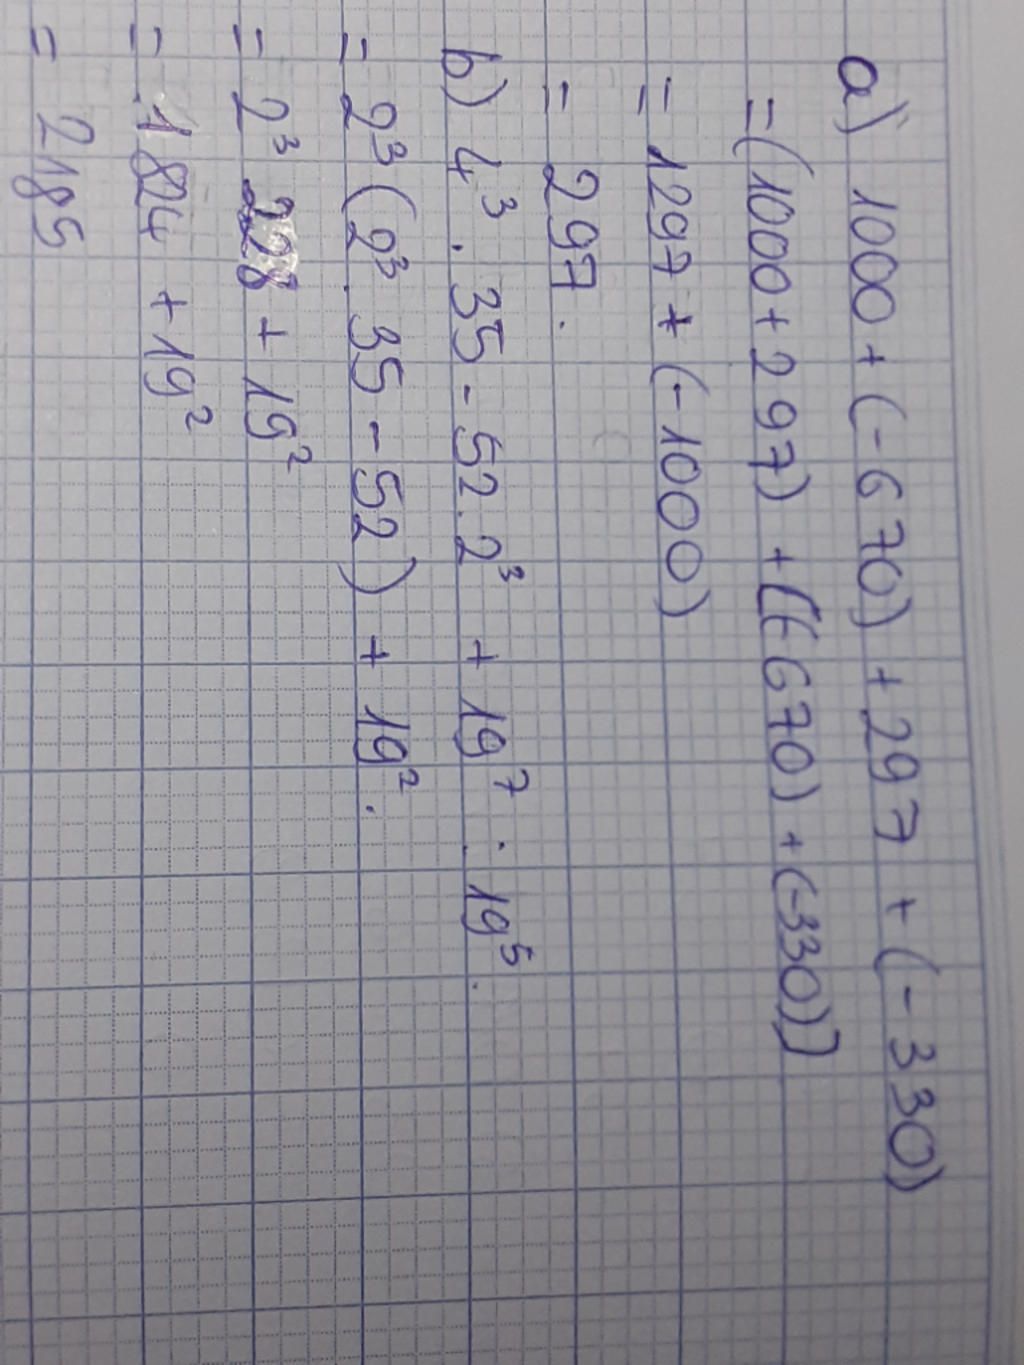 a) 1000 + (-670) + 297 + (-330)
= (1000 + 297) + [(-670) + (-330)]
= 1297 + (-1000)
= 297.
b) 4³ . 35 - 52 . 2³ + 19⁷ : 19⁵.
= 2³ (2³ . 35 - 52) + 19².
= 2³ 228 + 19²
= 1824 + 19²
= 2185